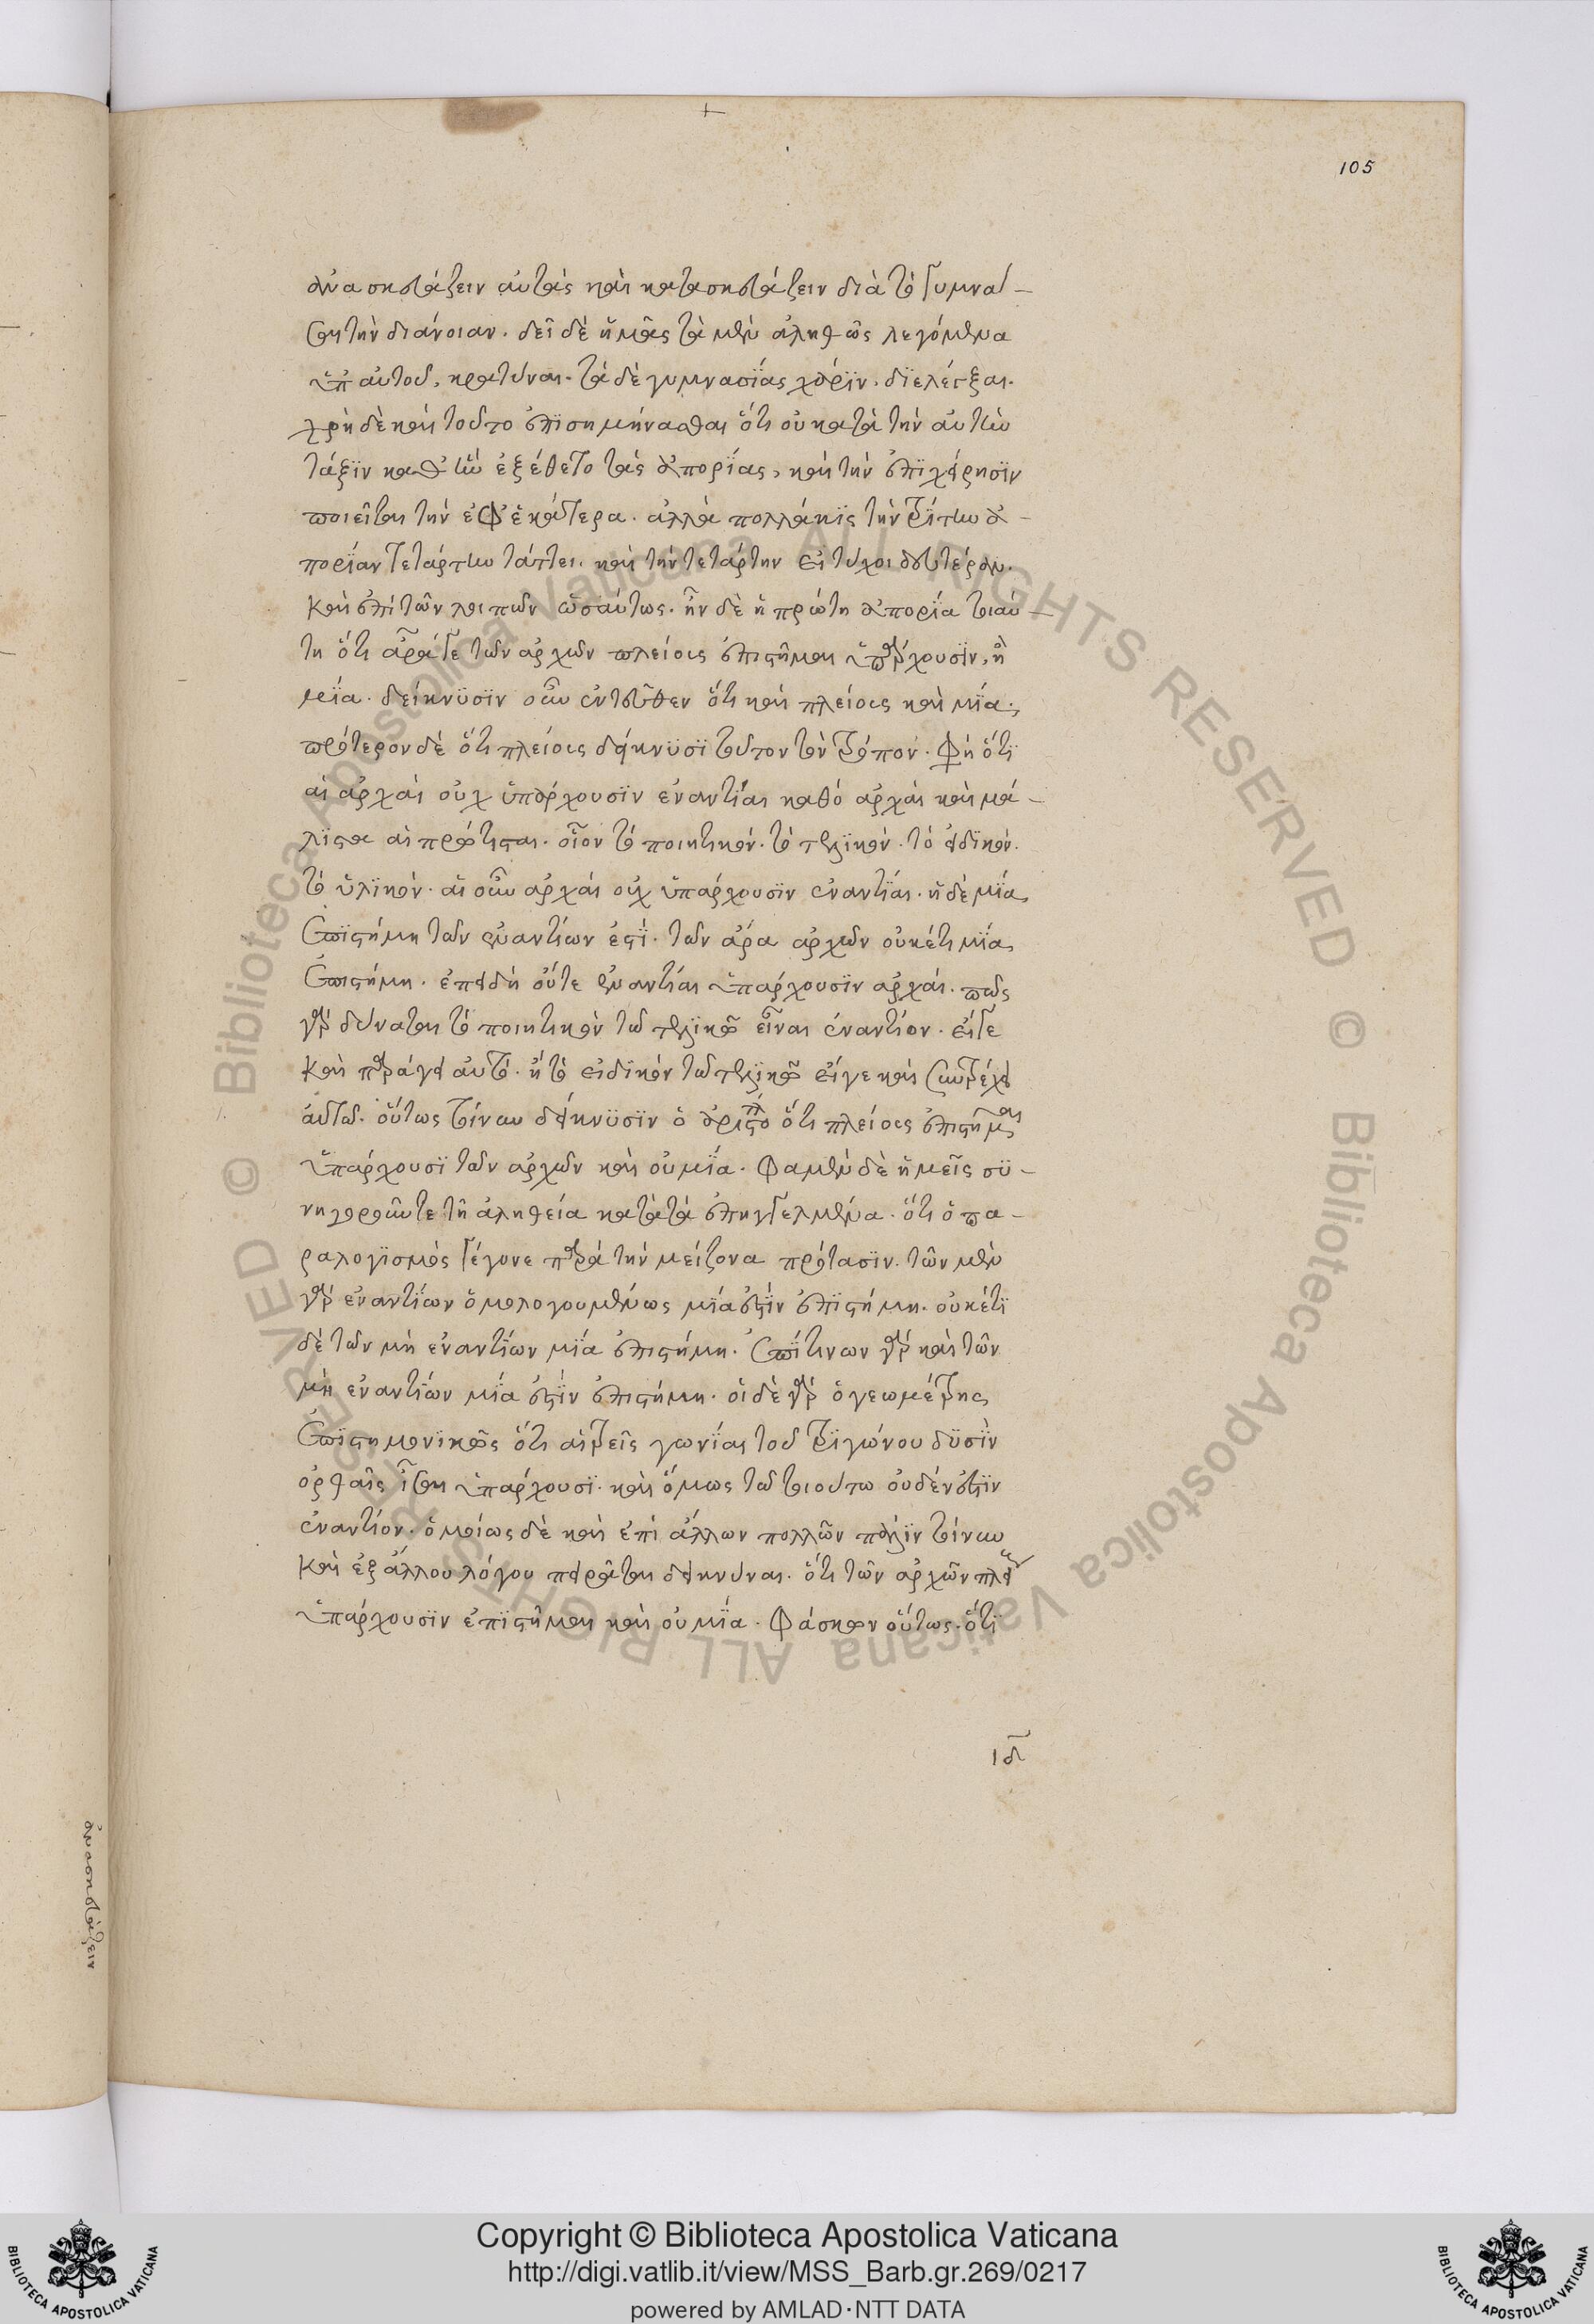 105
ἀνασκευάζειν αὐτὰς καὶ κατασκευάζειν διὰ τὸ γυμνά-
σαι τὴν διάνοιαν. δεῖ δὲ ἡμᾶς τὰ μὲν ἀληθῶς λεγόμενα
ὑπ αὐτοῦ, κρατῦναι. τὰ δὲ γυμνασίας χάριν, διελέγξαι.
χρὴ δὲ καὶ τοῦτο ἐπισημήνασθαι ὅτι οὐ κατὰ τὴν αὐτὴν
τάξϊν καθ ἣν ἐξέθετο τὰς ἀπορΐας, καὶ τὴν ἐπϊχείρησϊν
ποιεῖται τὴν ἐφ ἑκάτερα. ἀλλὰ πολλάκϊς τὴν τρίτην ἀ-
πορΐαν τετάρτην τάττει. καὶ τὴν τετάρτην εἰ τύχοι δευτέραν.
καὶ ἐπὶ τῶν λοιπῶν ὡσαύτως. ἦν δὲ ἡ πρώτη ἀπορΐα τοιαύ-
τη ὅτι ἆρά γε τῶν ἀρχῶν πλείους ἐπιστῆμαι ὑπάρχουσϊν, ἢ
μΐα. δείκνϋσϊν οὖν ἐντεῦθεν ὅτι καὶ πλείους καὶ μΐα.
πρότερον δὲ ὅτι πλείους δείκνϋσϊ τοῦτον τὸν τρόπον. φη ὅτϊ
αἱ ἀρχαὶ οὐχ ὑπάρχουσϊν ἐναντΐαι καθὸ ἀρχαὶ καὶ μά-
λϊστα αἱ πρώτισται. οἷον τὸ ποιητικόν. τὸ τελϊκόν. τὸ εἰδϊκόν.
τὸ ὑλϊκόν. αἱ οὖν ἀρχαὶ οὐχ ὑπάρχουσϊν ἐναντΐαι. ἡ δὲ μΐα
ἐπϊστήμη τῶν ἐναντίων ἐστΐ. τῶν ἄρα ἀρχῶν οὐκέτι μΐα
ἐπιστήμη. ἐπειδὴ οὔτε ἐναντΐαι ὑπάρχουσϊν ἀρχαί. πῶς
γὰρ δύναται τὸ ποιητικὸν τῶ τελϊκῶ εἶναι ἐναντΐον. εἴγε
καὶ παράγει αὐτό. ἢ τὸ εἰδϊκὸν τῶ τελϊκῶ εἴγε καὶ συντρέχει
αὐτῶ. οὕτως τοίνυν δείκνϋσϊν ὁ ἀριστο^τλ ὅτι πλείους ἐπιστῆμαι
ὑπάρχουσϊ τῶν ἀρχῶν καὶ οὐ μΐα. φαμὲν δὲ ἡμεῖς σϋ-
νηγοροῦντε τῆ ἀληθεία κατὰ τὰ ἐπηγγελμένα. ὅτι ὁ πα-
ραλογϊσμὸς γέγονε παρὰ τὴν μείζονα πρότασϊν. τῶν μὲν
γὰρ ἐναντΐων ὁμολογουμένως μΐα ἐστὶν ἐπϊστήμη. οὐκέτϊ
δὲ τῶν μὴ ἐναντΐων μΐα ἐπιστήμη. ἐπΐ τινων γὰρ καὶ τῶν
μὴ ἐναντΐων μΐα ἐστὶν ἐπιστήμη. οἶδε γὰρ ὁ γεωμέτρης
ἐπϊστημονϊκῶς ὅτι αἱ τρεῖς γωνΐαι τοῦ τρϊγώνου δϋσῒν
ὀρθαῖς ἶσαι ὑπάρχουσϊ. καὶ ὅμως τῶ τοιούτω οὐδέν ἐστϊν
ἐναντΐον. ὁμοίως δὲ καὶ ἐπὶ ἄλλων πολλῶν πάλϊν τοίνυν
καὶ ἐξ ἄλλου λόγου πειρᾶται δεικνῦναι. ὅτι τῶν ἀρχῶν πλεί
ὑπάρχουσϊν ἐπϊστῆμαι καὶ οὐ μΐα. φάσκων οὕτως. ὅτϊ
ιδ
ἀνασκευάζειν
Copyright © Biblioteca Apostolica Vaticana
http://digi.vatlib.it/view/MSS_Barb.gr.269/0217
powered by AMLAD·NTT DATA